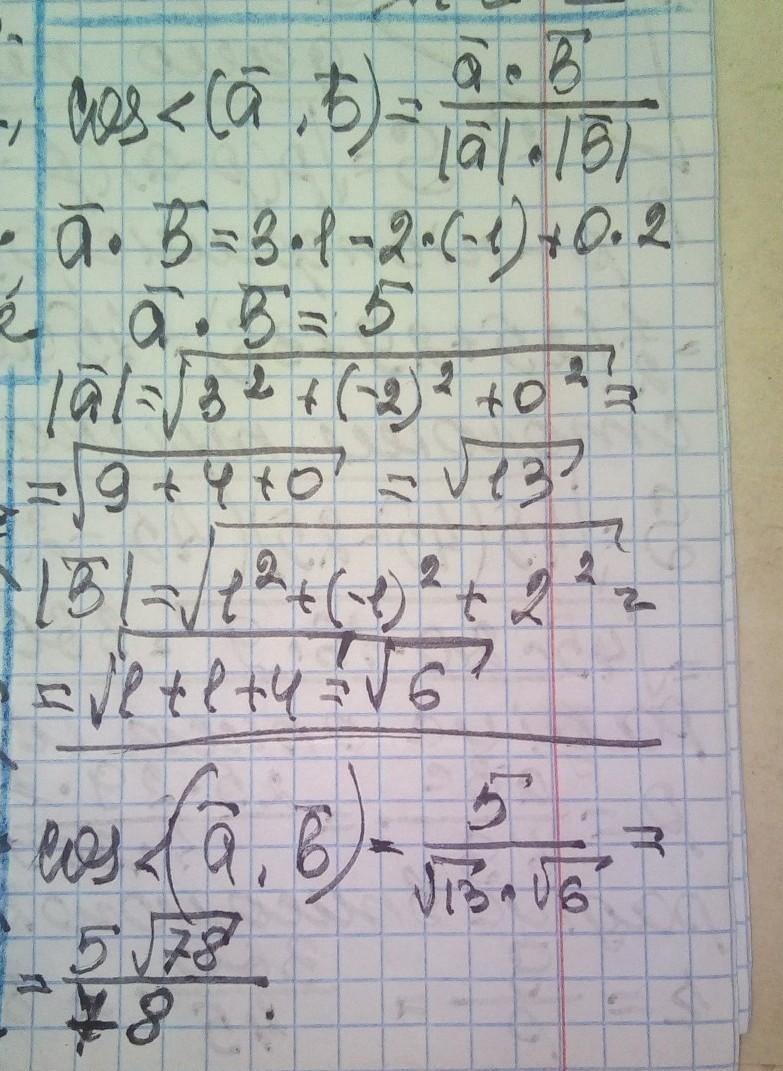 cos<(ā, b̄) = ā·b̄ / |ā|·|b̄|
ā·b̄=3·1-2·(-1)+0·2
ā·b̄=5
|ā|=√3²+(-2)²+0²=
=√9+4+0 = √13
|b̄|=√1²+(-1)²+2²=
=√1+1+4=√6
cos<(ā, b̄)=5 / √13·√6 =
=5√78 / 78.